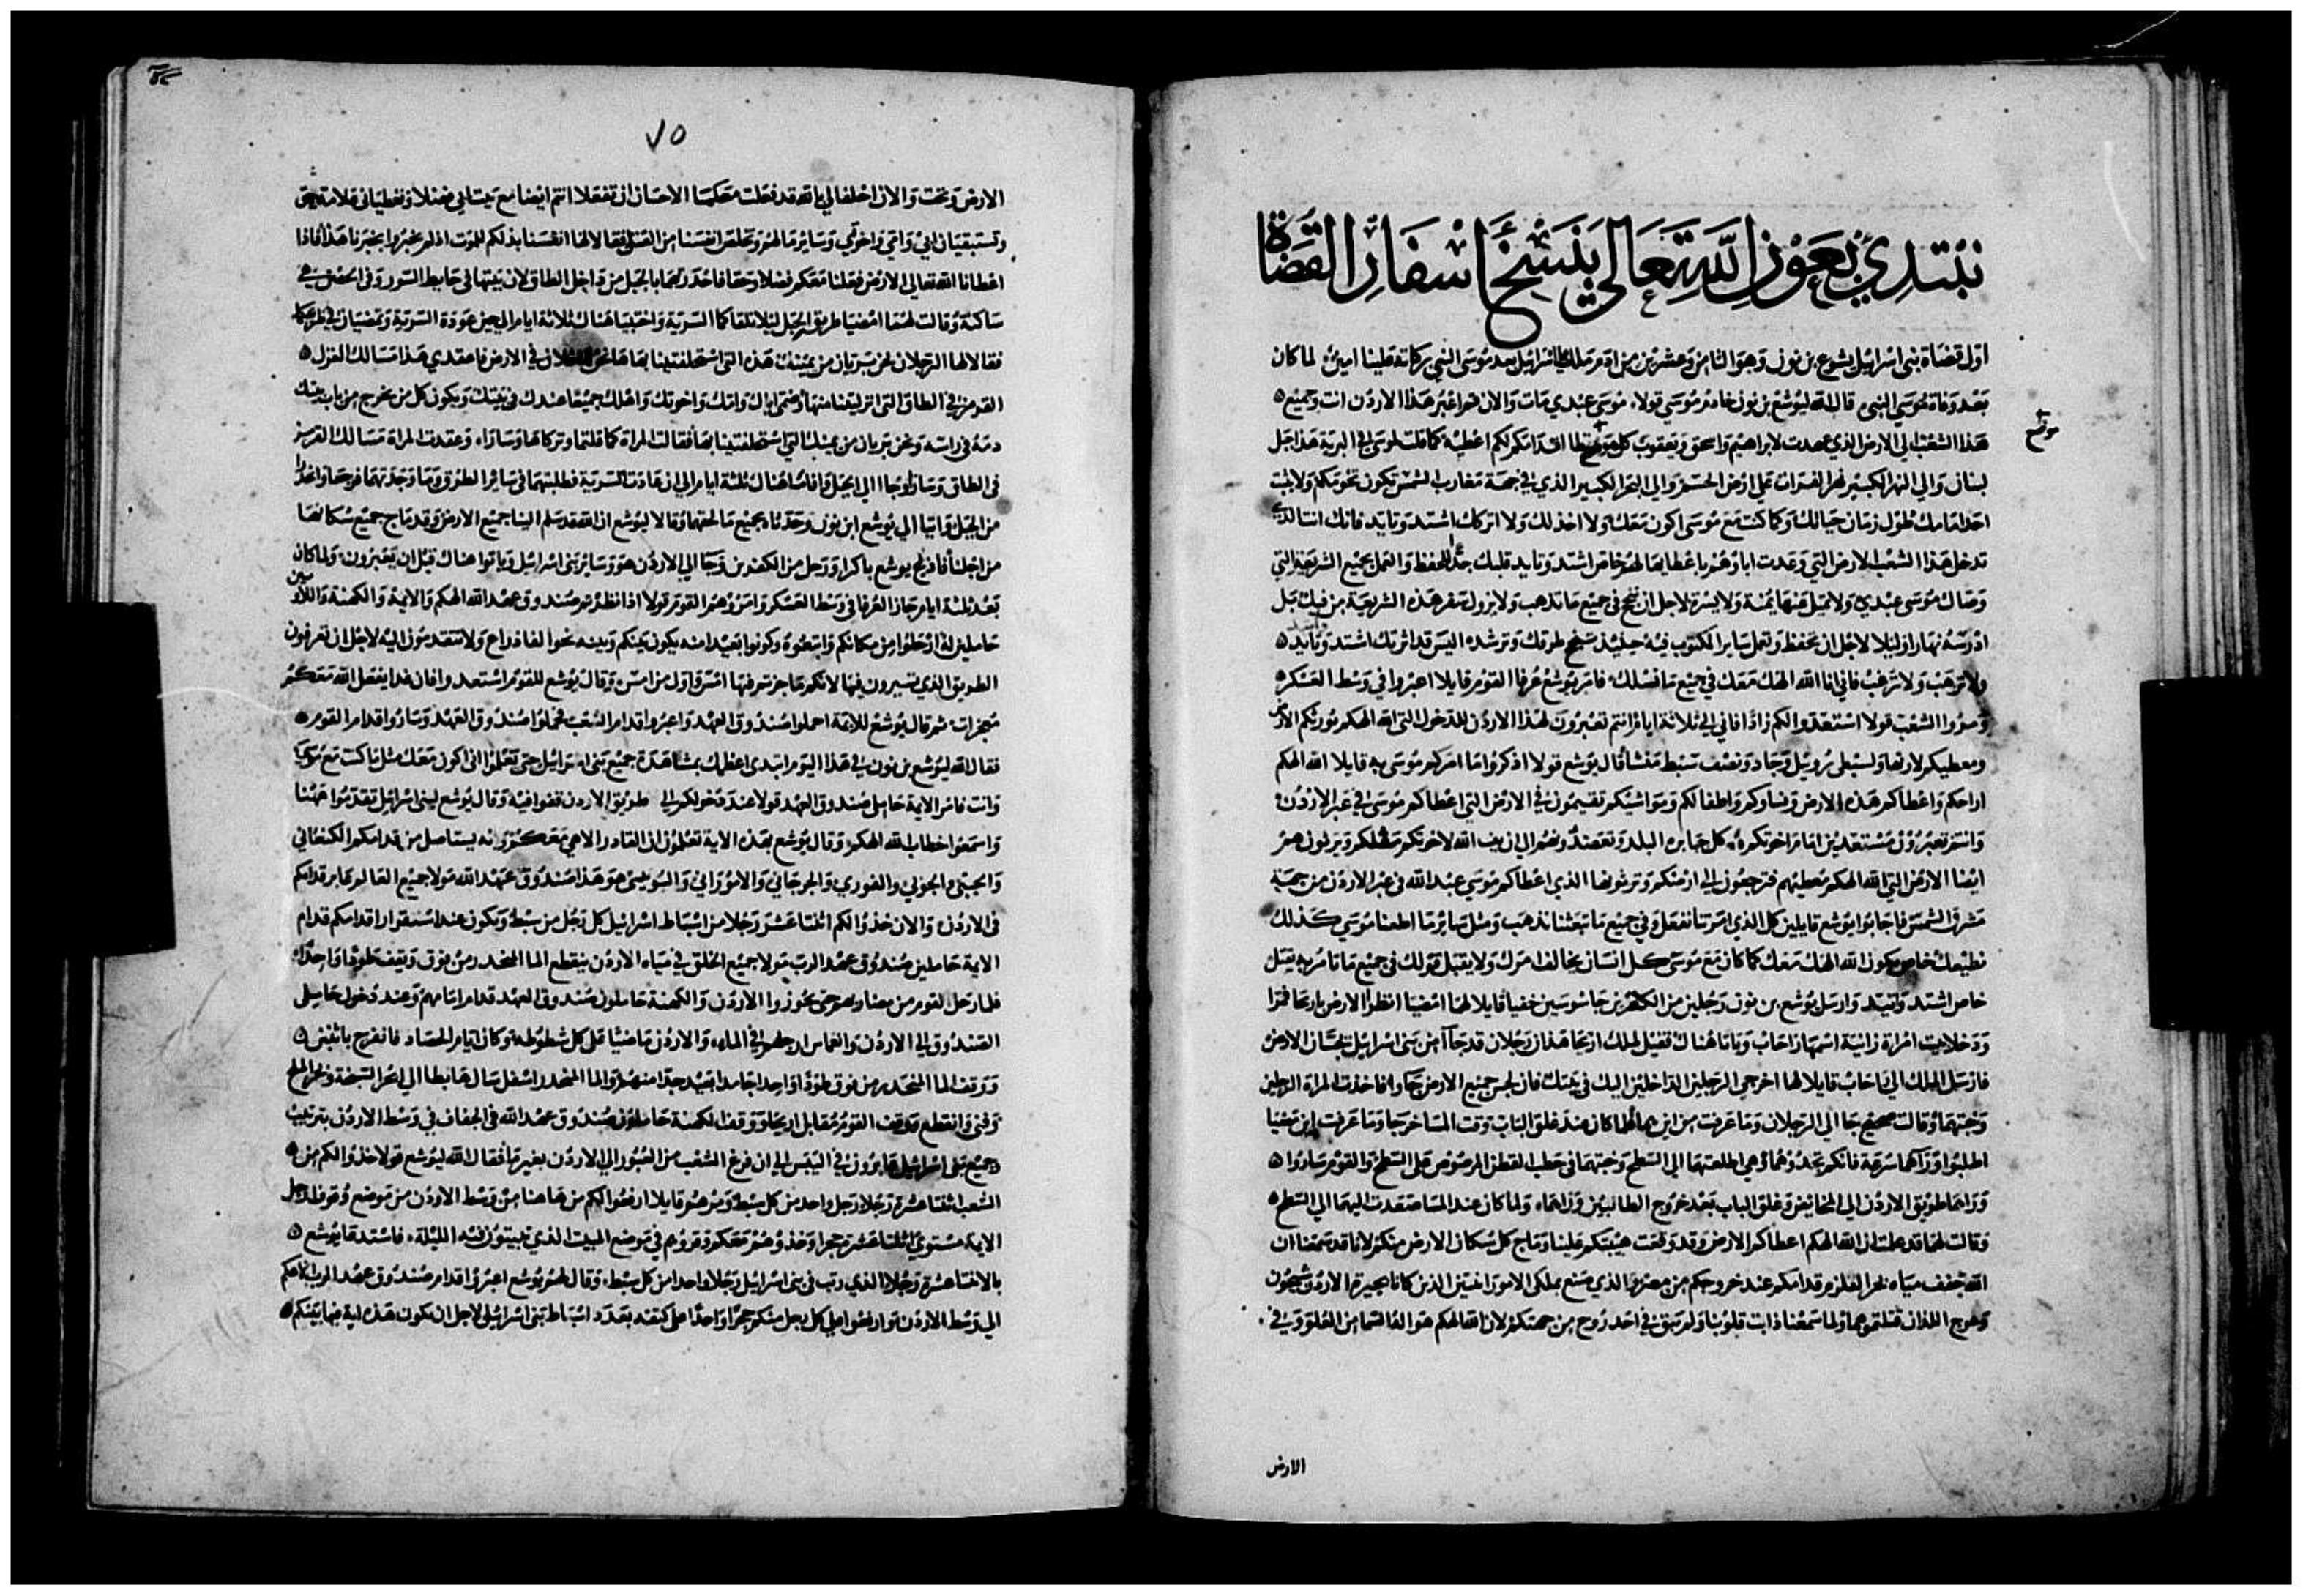 نبتدئ بعون الله تعالي بنسخ اسفار القضاة
اول قضاة بني اسرائيل يشوع بن نون وهو الثامن وعشرين من ادم ملك اسرائيل بعد موسى النبي بركاته علينا امين لما كان
بعد وفاة موسي النبي قال الله ليوشع بن نون خادم موسي قولا موسي عبدي مات والان قم اعبر هذا الاردن انت وجميع
هذا الشعب الي الارض الذي عهدت لابراهيم واسحق ويعقوب كل تطا اقدامكم لكم اعطيه كما قلت لموسى في البرية هذا جبل
موضع
لبنان والي النهر الكبير نهر الفرات علي ارض الحسم والي البحر الكبير الذي في جهة مغارب الشمس تكون تخومكم ولا يثبت
احد امامك طول زمان حياتك وكما كنت مع موسى اكون معك ولا اخذلك ولا اتركك اشتد وتايد فانك انت الذي
تدخل هذا الشعب الارض التي وعدت اباؤهم باعطايها لهم خاص اشتد وتايد قلبك جدا للحفظ والعمل بجميع الشريعة التي
وصاك موسى عبدي ولا تميل عنها يمنة ولا يسرة لاجل ان تنجح في جميع ما تذهب ولا يزول سفر هذه الشريعة من فيك بل
ادرسه نهارا وليلا لاجل ان تحفظ وتعمل ساير المكتوب فيه حينيذ تنجح طرقك وترشد اليس قد امرتك اشتد وتايد
ولا ترهب ولا ترعب فاني انا الله الهك معك في جميع ما فسلك فامر يوشع عرفا القوم قايلا اعبروا في وسط العسكر
ومروا الشعب قولا استعدوا لكم زادا فاني الي ثلاثة ايام انتم تعبرون هذا الاردن للدخول التي الله الهكم يورثكم الارض
ومعطيكم لارثها ولسبطي روبيل وجاد ونصف سبط منشا قال يوشع قولا اذكروا ما امركم موسى به قايلا الله الهكم
اراحكم واعطاكم هذه الارض ونساوكم واطفالكم ومواشيكم تقيمون في الارض التي اعطاكم موسى في عبر الاردن
وانتم تعبرون مستعدين امام اخوتكم كل جبابره البلد وتعضدونهم الي ان يريح الله لاخوتكم مثلكم ويرثون هم
ايضا الارض التي الله الهكم معطيهم فترجعون الي ارضكم وترثوها الذي اعطاكم موسي عبد الله في عبر الاردن من جهة
مشرق الشمس فاجابوا يوشع قايلين كل الذي امرتنا نفعل وفي جميع ما تبعثنا نذهب ومثل ساير ما اطعنا موسي كذلك
نطيعك خاص يكون الله الهك معك كما كان مع موسى كل انسان يخالف امرك ولا يقبل قولك في جميع ما تامر به يقتل
خاص اشتد وتايد وارسل يوشع بن نون رجلين من جاسوسين خفيا قايلا لهما امضيا انظرا الارض واريحا فمرا
ودخلا بيت امراة زانية اسمها راحاب وباتا هناك فقيل لملك اريحا هذان رجلان قد جاآ من بني اسرائيل لجسان الارض
فارسل الملك الي راحاب قايلا لها اخرجي الرجلين الداخلين اليك في بيتك فان لجس جميع الارض جاوا فاخذت المراة الرجلين
وخبتهما وقالت صحيح جا الي الرجلان وما عرفت من اين هما ولما كان عند غلق الباب وقت المسا خرجا وما عرفت اين مضيا
اطلبوا وراهما سرعة فانكم تجدوهما وهي اطلعتهما الي السطح وخبتهما في حطب القطن المرصوص على السطح والقوم ساروا
وراهما طريق الاردن الي المخايض وغلق الباب بعد خروج الطالبين وراهما ولما كان عند المسا صعدت اليهما الي السطح
وقالت لهما قد علمت ان الله الهكم اعطاكم الارض وقد وقعت هيبتكم علينا وماج كل سكان الارض منكم لانا قد سمعنا ان
الله جفف مياه بحر القلزم قدامكم عند خروجكم من مصر وما الذي صنع بملكي الامورانيين الذين كانا في الاردن سيحون
وعوج اللذان قتلتموهما ولما سمعنا ذابت قلوبنا ولم تبق في احد روح من جهتكم لان الله الهكم هو اله السما من العلو وفي
الارض
٧٥
الارض وتحت والان احلفا لي بالله قد فعلت معكما الاحسان ان تفعلا انتم ايضا مع بيت ابي فضلا وتعطياني علامة حق
وتستبقيان ابي وامي واخوتي وساير ما لهم وتخلص انفسنا من القتل فقالا لها انفسنا بذلكم للموت اذ لم تخبروا بخبرنا هذا فاذا
اعطانا الله تعالي الارض فعلنا معكم فضلا وحقا فاحدرتهما بالحبل من داخل الطاق لان بيتها في حايط السور وفي الحصن هي
ساكنة وقالت لهما امضيا طريق الجبل ليلا تلقاكما السرية واختبيا هناك ثلاثة ايام الي حين عودة السرية وتمضيان في طريقكما
فقالا لها الرجلان نحن بريان من يمينك هذه التي استحلفتينا بها ها نحن داخلان في الارض فاعقدي هذا مسالك الغزل
القرمز في الطاق التي انزلتينا منها وضمي ابوك وامك واخوتك واهلك جميعا عندك في بيتك ويكون كل من يخرج من باب بيتك
دمه في راسه ونحن بريان من يمينك التي استحلفتينا بها فقالت المراة كما قلتما وتركاها وسارا وعقدت المراة مسالك القرمز
في الطاق وسارا وجاا الي الجبل واقاما هناك ثلثة ايام الي ان عادت السرية فطلبتهما في ساير الطرق وما وجدتهما فرجعا واحدرا
من الجبل واتيا الي يوشع ابن نون وحدثاه بجميع ما لحقهما وقالا ليوشع ان الله قد سلم الينا جميع الارض وقد ماج جميع سكانها
من اجلنا فادلج يوشع باكرا ورحل من الكفرين وجا الي الاردن هو وساير بني اسرائيل وباتوا هناك قبل ان يعبرون ولما كان
بعد ثلثة ايام جاز العرفا في وسط العسكر وامروهم القوم قولا اذا نظرتم صندوق عهد الله الهكم والايمة والكهنة واللاويين
حاملين له ارحلوا من مكانكم واتبعوه وكونوا بعيدا منه يكون بينكم وبينه نحوا الفا ذراع ولا تتقدمون اليه لاجل ان تعرفون
الطريق الذي تسيرون فيها لانكم ما جزتم فيها امس واول من امس وقال يوشع للقوم استعدوا فان غدا يفعل الله معكم
معجزات ثم قال يوشع للايمة احملوا صندوق العهد واعبروا قدام الشعب فحملوا صندوق العهد وساروا قدام القوم
فقال الله ليوشع بن نون في هذا اليوم ابتدي اعظمك بمشاهدة جميع بني اسرائيل حتى يعلموا اني اكون معك مثل ما كنت مع موسى
وانت فامر الايمة حاملي صندوق العهد قولا عند دخولكم الي طريق الاردن قفوا فيه وقال يوشع لبني اسرائيل تقدموا ههنا
واسمعوا خطاب الله الهكم وقال يوشع بهذه الاية تعلمون ان القادر الاهي معكم وانه يستاصل من قدامكم الكنعاني
والحيثي والحوي والفرزي والجرجاني والاموراني واليبوسي هو هذا صندوق عهد الله مولا جميع العالم عابر قدامكم
في الاردن والان خذوا لكم اثنتا عشر رجلا من اسباط اسرائيل كل رجل من سبط ويكون عند استقرار اقدامكم قدام
الايمة حاملين صندوق عهد الرب مولا جميع الخلق في مياه الاردن ينقطع الما المنحدر من فوق ويقف طودا واحدا
فلما رحل القوم من مضاربهم حتى يجوزوا الاردن والكهنة حاملون صندوق العهد قدام امامهم وعند دخول حاملي
الصندوق الي الاردن وانغماس ارجلهم في الماء والاردن فايضا على كل شطوطه وكان ايام الحصاد فانفرج باثنين
ووقف الما المنحدر من فوق طودا واحدا جامدا بعيد جدا منهم والما المنحدر اسفل سال هابطا الي بحر السبخة وبحر الملح
وفني وانقطع ووقف القوم مقابل اريحا ووقف الكهنة حاملون صندوق عهد الله في الجفاف في وسط الاردن بترتيب
وجميع بني اسرائيل عابرون في اليبس الي ان فرغ الشعب من العبور الي الاردن بغير ما فقال الله ليوشع قولا خذوا لكم من
الشعب اثنتا عشرة رجلا رجل واحد من كل سبط ومرهم قايلا ارفعوا لكم من هاهنا من وسط الاردن من موضع وقوف ارجل
الايمة مستوي اثنتا عشرة حجرا وخذوهم معكم وقروهم في موضع المبيت الذي تبيتون فيه الليلة فاستدعا يوشع
بالاثنتا عشرة رجلا الذي رتب في بني اسرائيل رجلا واحدا من كل سبط وقال لهم يوشع اعبروا قدام صندوق عهد الرب الاهكم
الي وسط الاردن وارفعوا علي كل رجل منكم حجرا واحدا على كتفه بعدد اسباط بني اسرائيل لاجل ان تكون هذه اية فيما بينكم